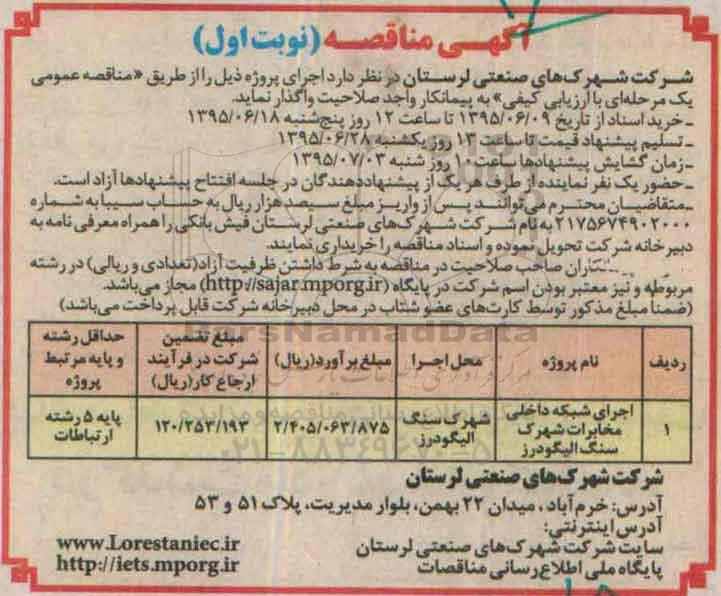 آگهی مناقصه (نوبت اول)
شرکت شهرک‌های صنعتی لرستان در نظر دارد اجرای پروژه ذیل را از طریق «مناقصه عمومی
یک مرحله‌ای با ارزیابی کیفی» به پیمانکار واجد صلاحیت واگذار نماید.
ـ خرید اسناد از تاریخ ۱۳۹۵/۰۶/۰۹ تا ساعت ۱۲ روز پنج‌شنبه ۱۳۹۵/۰۶/۱۸
ـ تسلیم پیشنهاد قیمت تا ساعت ۱۳ روز یکشنبه ۱۳۹۵/۰۶/۲۸
ـ زمان گشایش پیشنهادها ساعت ۱۰ روز شنبه ۱۳۹۵/۰۷/۰۳
ـ حضور یک نفر نماینده از طرف هر یک از پیشنهاددهندگان در جلسه افتتاح پیشنهادها آزاد است.
ـ متقاضیان محترم می‌توانند پس از واریز مبلغ سیصد هزار ریال به حساب سیبا به شماره
۲۱۷۵۶۷۴۹۰۲۰۰۰ به نام شرکت شهرک‌های صنعتی لرستان فیش بانکی را همراه معرفی نامه به
دبیرخانه شرکت تحویل نموده و اسناد مناقصه را خریداری نمایند.
صاحب صلاحیت در مناقصه به شرط داشتن ظرفیت آزاد (تعدادی و ریالی) در رشته
مربوطه و نیز معتبر بودن اسم شرکت در پایگاه (http://sajar.mporg.ir) مجاز می‌باشد.
(ضمنا مبلغ مذکور توسط کارت‌های عضو شتاب در محل دبیرخانه شرکت قابل پرداخت می‌باشد)
ردیف نام پروژه محل اجرا مبلغ برآورد(ریال) مبلغ تضمین شرکت در فرآیند ارجاع کار(ریال) حداقل رشته و پایه مرتبط پروژه
۱ اجرای شبکه داخلی مخابرات شهرک سنگ الیگودرز شهرک سنگ الیگودرز ۲/۴۰۵/۰۶۳/۸۷۵ ۱۲۰/۲۵۳/۱۹۳ پایه ۵ رشته ارتباطات
ParsNamadData
۰۲۱-۸۸۳۴۹۶۷۰-۵
شرکت شهرک‌های صنعتی لرستان
آدرس: خرم‌آباد، میدان ۲۲ بهمن، بلوار مدیریت، پلاک ۵۱ و ۵۳
آدرس اینترنتی:
سایت شرکت شهرک‌های صنعتی لرستان www.Lorestaniec.ir
پایگاه ملی اطلاع رسانی مناقصات http://iets.mporg.ir